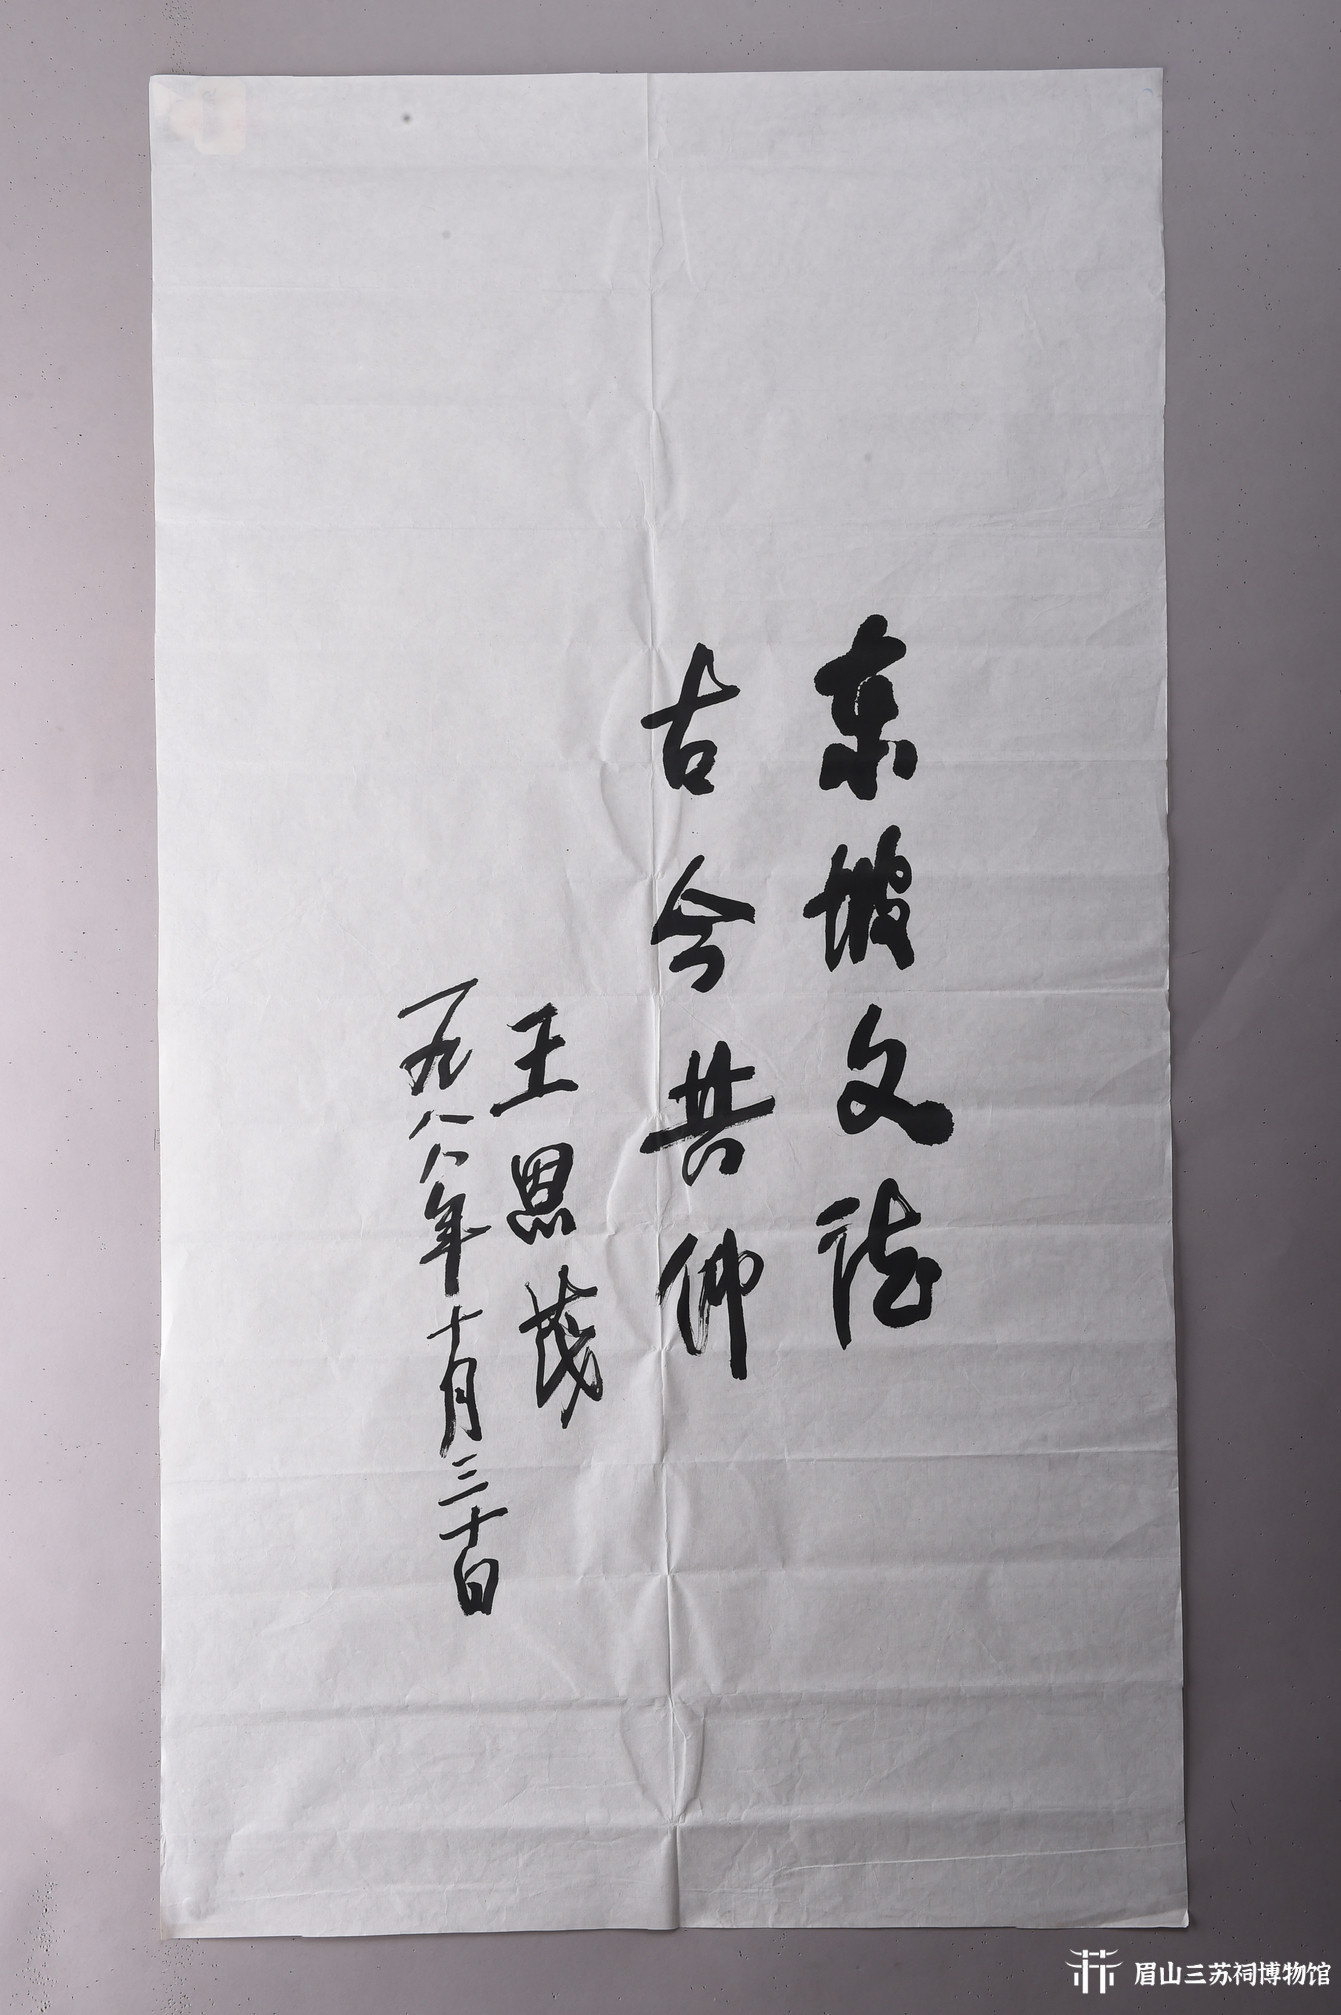 东坡文德
古今共仰
王恩茂
一九八八年十月三十日
眉山三苏祠博物馆